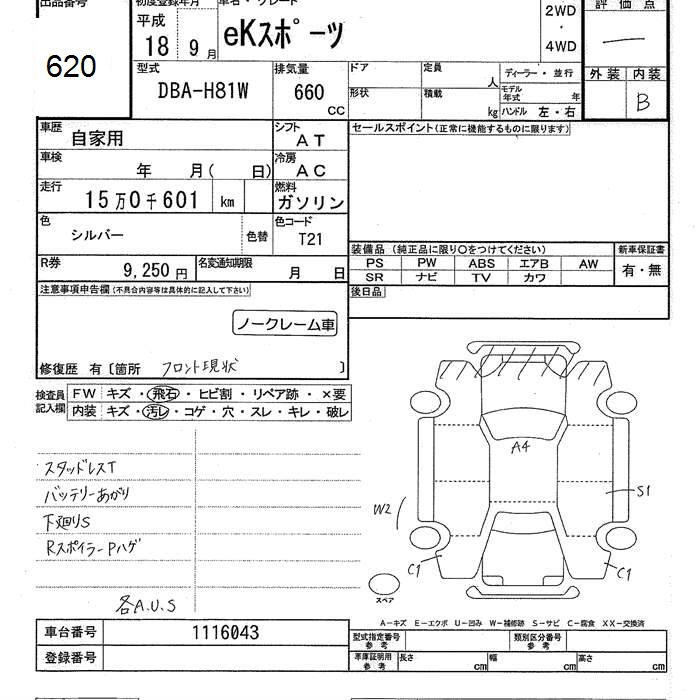 出品番号
620
初度登録年月
平成
18 9月
車名・グレード
eKスポーツ
2WD
・
4WD
評価点
―
外装 内装
B
型式
DBA-H81W
排気量
660
CC
ドア
定員
人
形状
積載
kg
ディーラー・並行
モデル年式
年
ハンドル 左・右
車歴
自家用
シフト
AT
セールスポイント(正常に機能するものに限ります)
車検
年 月( 日)
冷房
AC
走行
15万0千601 km
燃料
ガソリン
色
シルバー
色替
色コード
T21
R券
9,250円
名変通知期限
月 日
装備品(純正品に限り〇をつけてください)
PS PW ABS エアB AW
SR ナビ TV カワ
新車保証書
有・無
後日品
注意事項申告欄(不具合内容等は具体的に記入して下さい)
ノークレーム車
修復歴 有〔箇所 フロント現状 〕
検査員記入欄
FW キズ・飛石・ヒビ割・リペア跡・×要
内装 キズ・汚レ・コゲ・穴・スレ・キレ・破レ
スタッドレスT
バッテリーあがり
下廻りS
RスポイラーPハゲ
各A.U.S
A4
S1
W2
C1
C1
スペア
A―キズ E―エクボ U―凹み W―補修跡 S―サビ C―腐食 XX―交換済
車台番号
1116043
登録番号
型式指定番号
参考
類別区分番号
参考
車庫証明用
参考
長さ cm
幅 cm
高さ cm